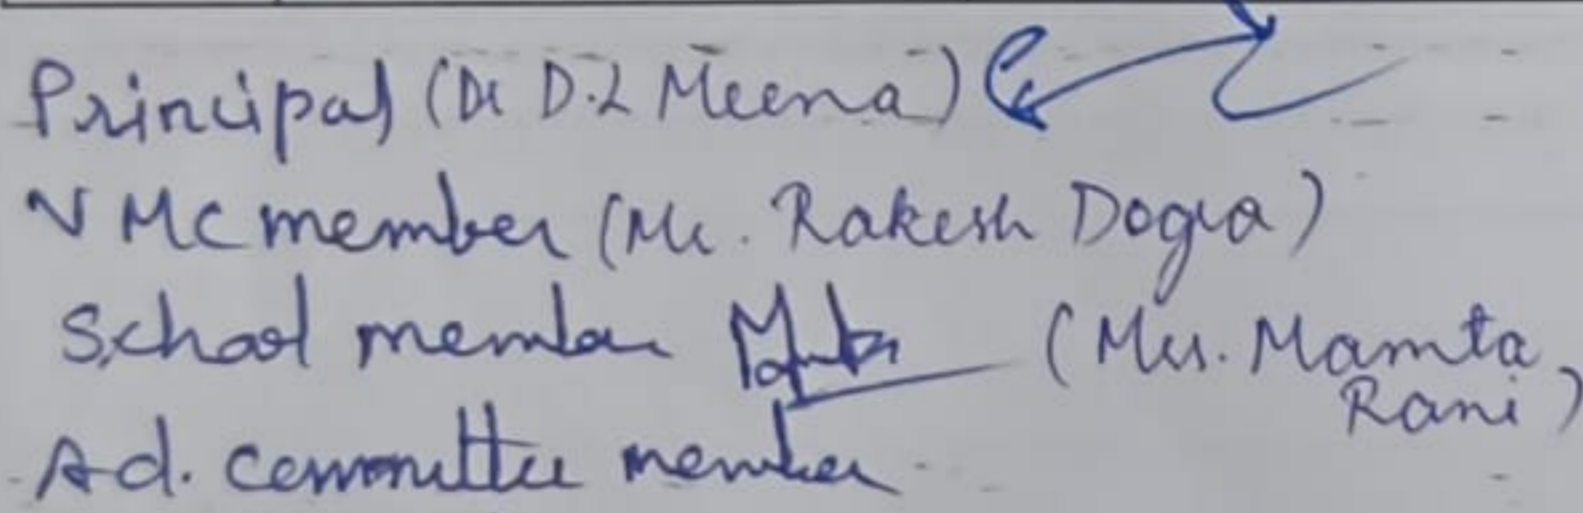 Principal (Dr D.L Meena)
VMC member (Mr. Rakesh Dogra)
School member (Mrs. Mamta Rani)
Ad. committee member